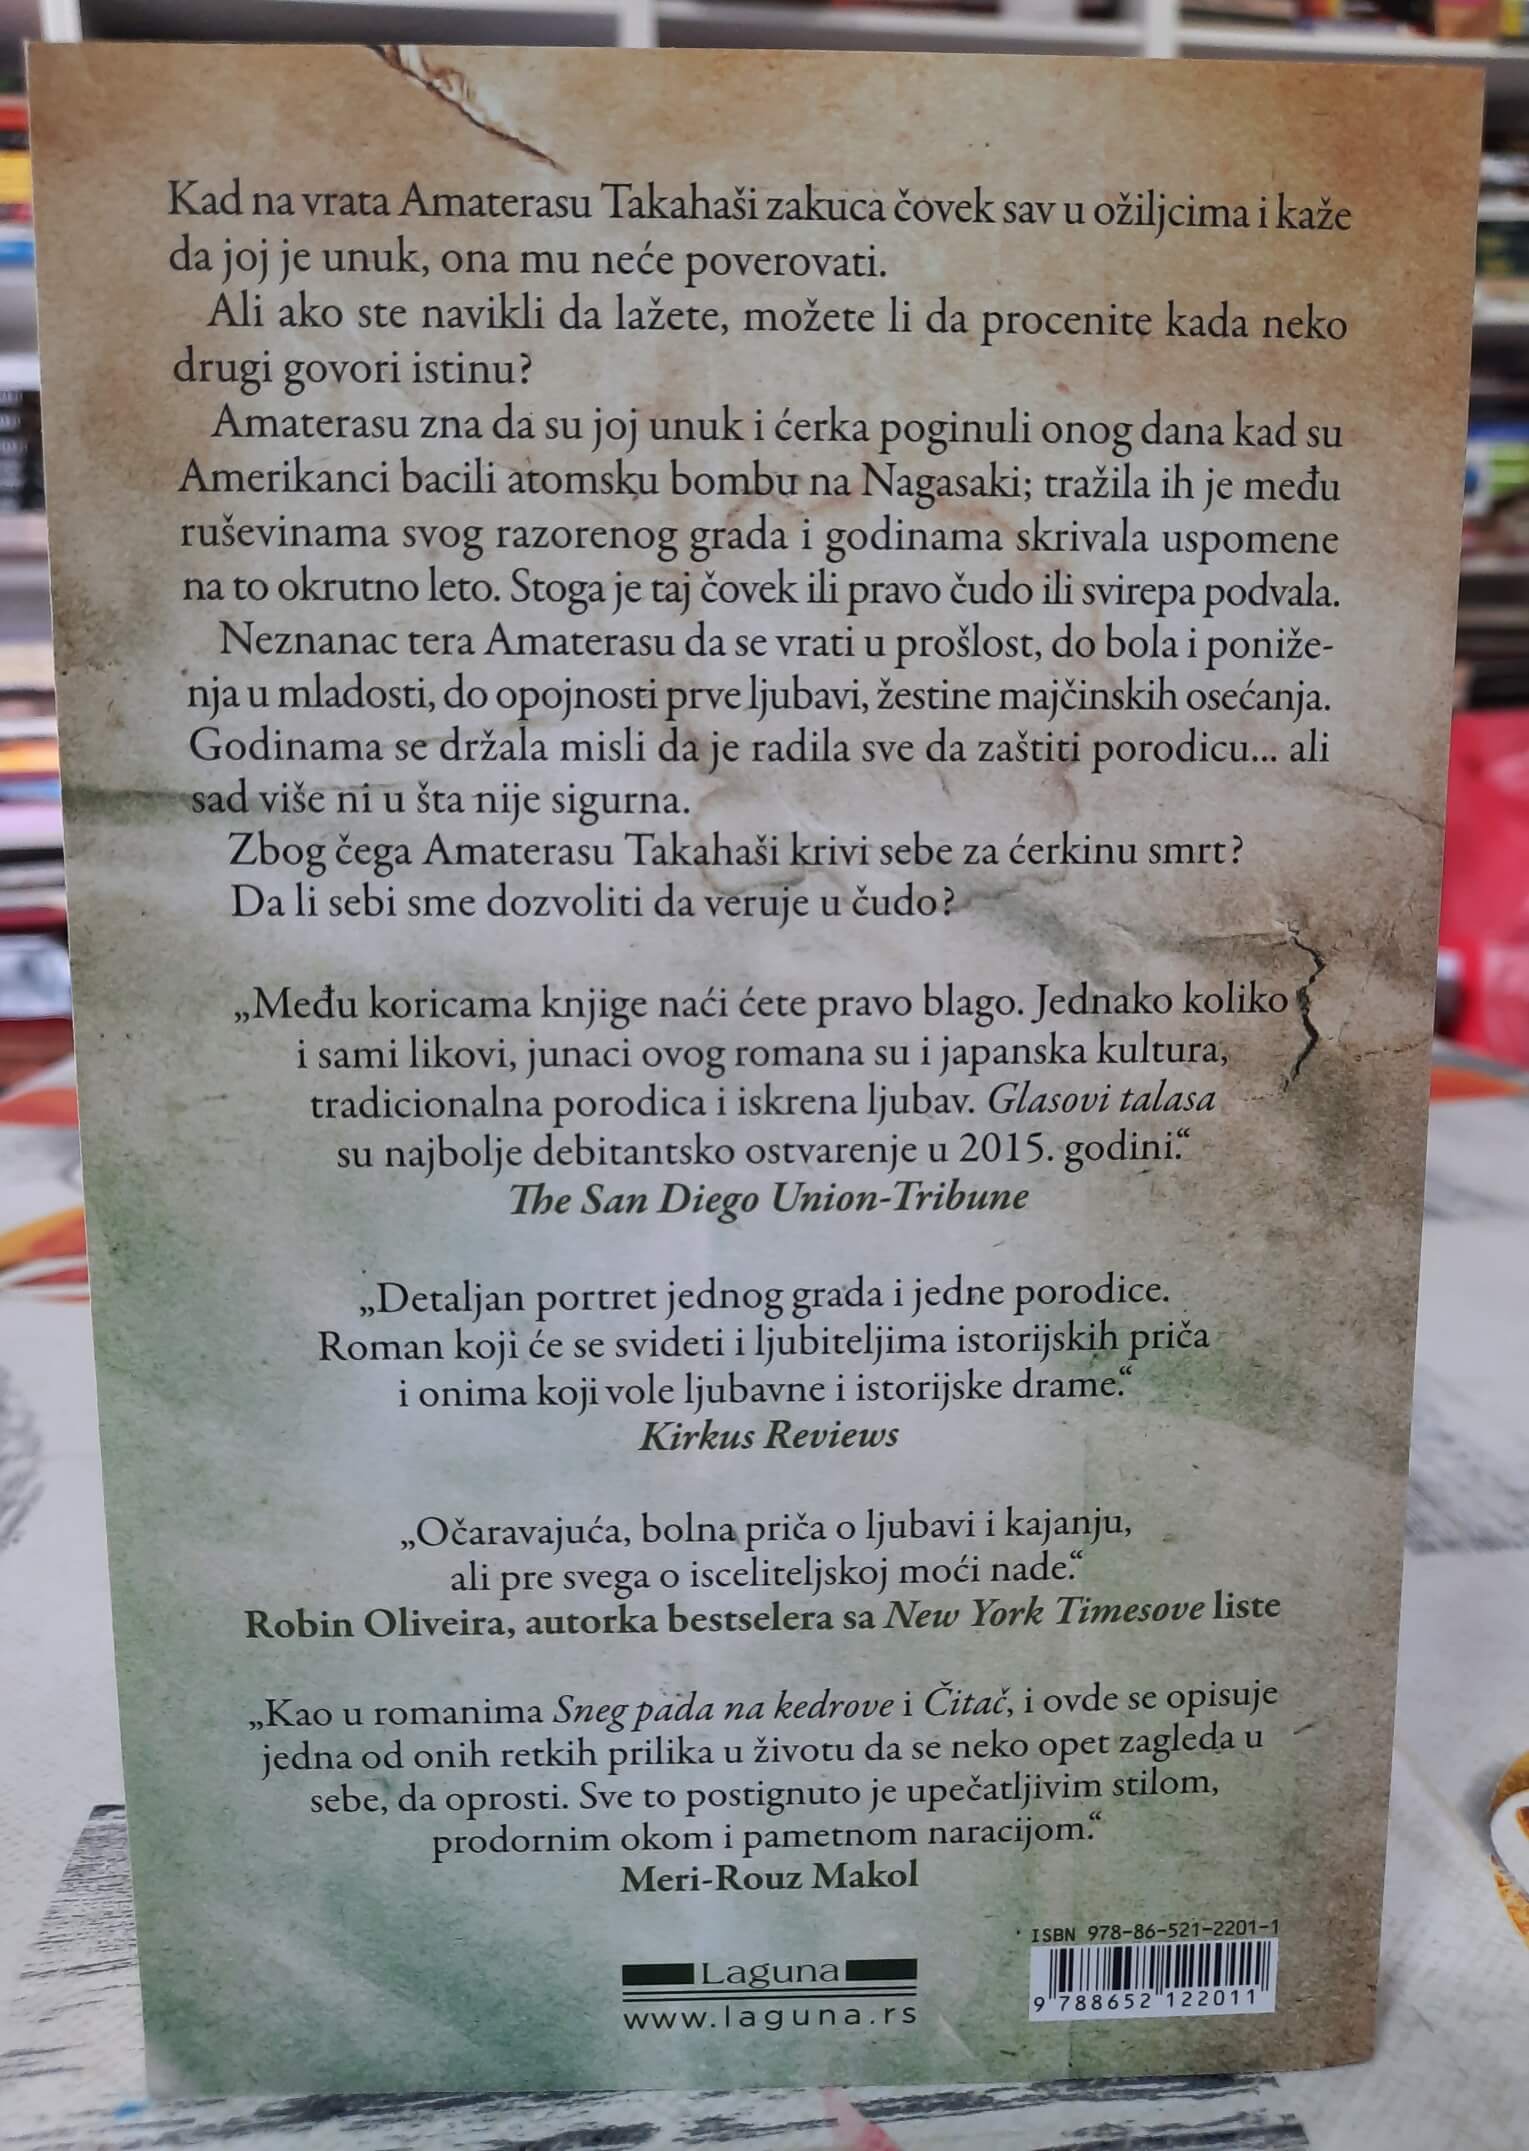 Kad na vrata Amaterasu Takahaši zakuca čovek sav u ožiljcima i kaže
da joj je unuk, ona mu neće poverovati.
Ali ako ste navikli da lažete, možete li da procenite kada neko
drugi govori istinu?
Amaterasu zna da su joj unuk i ćerka poginuli onog dana kad su
Amerikanci bacili atomsku bombu na Nagasaki; tražila ih je među
ruševinama svog razorenog grada i godinama skrivala uspomene
na to okrutno leto. Stoga je taj čovek ili pravo čudo ili svirepa podvala.
Neznanac tera Amaterasu da se vrati u prošlost, do bola i poniže-
nja u mladosti, do opojnosti prve ljubavi, žestine majčinskih osećanja.
Godinama se držala misli da je radila sve da zaštiti porodicu... ali
sad više ni u šta nije sigurna.
Zbog čega Amaterasu Takahaši krivi sebe za ćerkinu smrt?
Da li sebi sme dozvoliti da veruje u čudo?
„Među koricama knjige naći ćete pravo blago. Jednako koliko
i sami likovi, junaci ovog romana su i japanska kultura,
tradicionalna porodica i iskrena ljubav. Glasovi talasa
su najbolje debitantsko ostvarenje u 2015. godini.“
The San Diego Union-Tribune
„Detaljan portret jednog grada i jedne porodice.
Roman koji će se svideti i ljubiteljima istorijskih priča
i onima koji vole ljubavne i istorijske drame.“
Kirkus Reviews
„Očaravajuća, bolna priča o ljubavi i kajanju,
ali pre svega o isceliteljskoj moći nade.“
Robin Oliveira, autorka bestselera sa New York Timesove liste
„Kao u romanima Sneg pada na kedrove i Čitač, i ovde se opisuje
jedna od onih retkih prilika u životu da se neko opet zagleda u
sebe, da oprosti. Sve to postignuto je upečatljivim stilom,
prodornim okom i pametnom naracijom.“
Meri-Rouz Makol
ISBN 978-86-521-2201-1
9 788652 122011
Laguna
www.laguna.rs